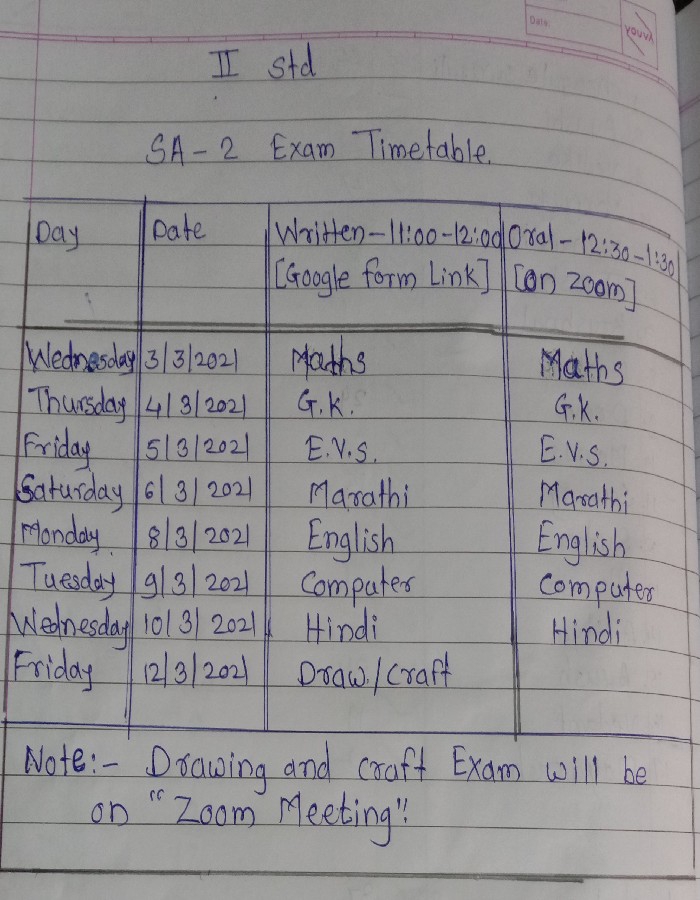 Date:
YOUVA
II Std
SA-2 Exam Timetable.
Day Date Written-11:00-12:00 Oral-12:30-1:30
[Google form Link] [on zoom]
Wednesday 3/3/2021 Maths Maths
Thursday 4/3/2021 G.K. G.K.
Friday 5/3/2021 E.V.S. E.V.S.
Saturday 6/3/2021 Marathi Marathi
Monday 8/3/2021 English English
Tuesday 9/3/2021 Computer Computer
Wednesday 10/3/2021 Hindi Hindi
Friday 12/3/2021 Draw./Craft
Note:- Drawing and craft Exam will be
on "Zoom Meeting"!